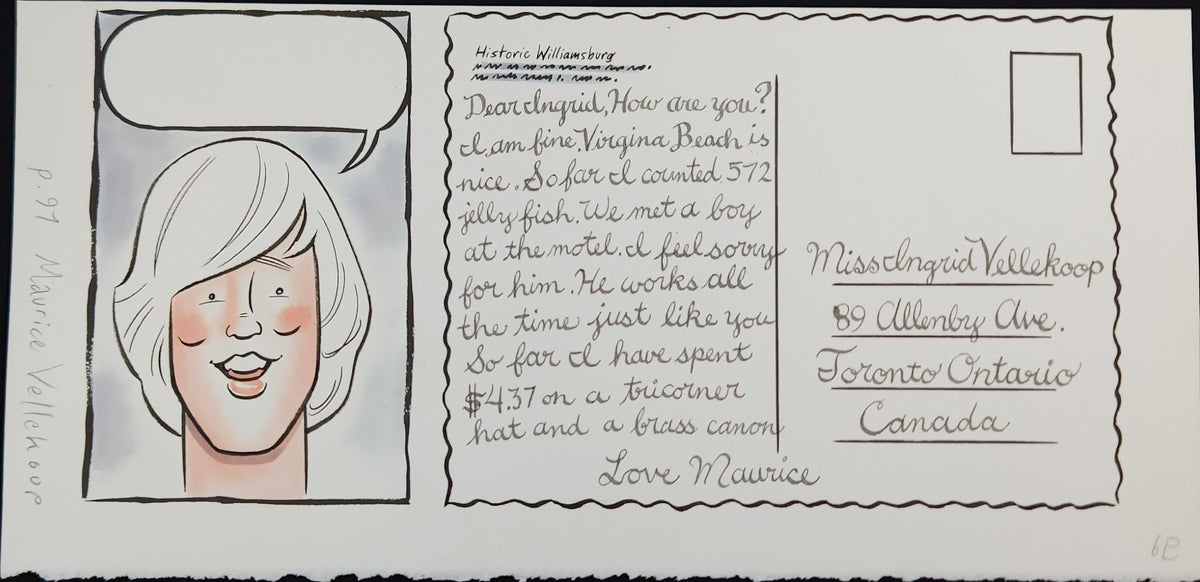 p.97 Maurice Vellekoop
Historic Williamsburg
Dear Ingrid, How are you?
I am fine. Virgina Beach is
nice. So far I counted 572
jelly fish. We met a boy
at the motel. I feel sorry
for him. He works all
the time just like you
So far I have spent
$4.37 on a tricorner
hat and a brass canon
Love Maurice
Miss Ingrid Vellekoop
89 Allenby Ave.
Toronto Ontario
Canada
6B